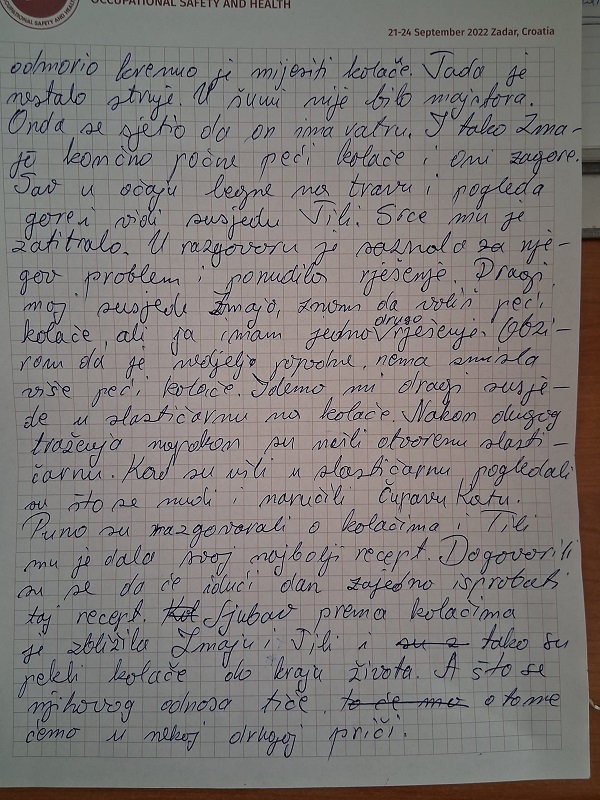 OCCUPATIONAL SAFETY AND HEALTH
21-24 September 2022 Zadar, Croatia
odmorio krenuo je mijesiti kolače. Tada je
nestalo struje. U šumi nije bilo majstora.
Onda se sjetio da on ima vatru. I tako Zma-
jo končno počne peći kolače i oni zagore.
Sav u očaju legne na travu i pogleda
gore i vidi susjedu Tili. Srce mu je
zatitralo. U razgovoru je saznala za nje-
gov problem i ponudila rješenje. Dragi
moj susjede Zmajo, znam da voliš peći
kolače, ali ja imam jedno drugo rješenje. Obzi-
rom da je nedjelja popodne, nema smisla
više peći kolače. Idemo mi dragi susje-
de u slastičarnu na kolače. Nakon dugog
traženja napokon su našli otvorenu slasti-
čarnu. Kad su ušli u slastičarnu pogledali
su što se nudi i naručili Čupavu Katu.
Puno su razgovarali o kolačima i Tili
mu je dala svoj najbolji recept. Dogovorili
su se da će idući dan zajedno isprobati
taj recept. Ljubav prema kolačima
je zbližila Zmaju i Tili i tako su
pekli kolače do kraja života. A što se
njihovog odnosa tiče, o tome
ćemo u nekoj drugoj priči.